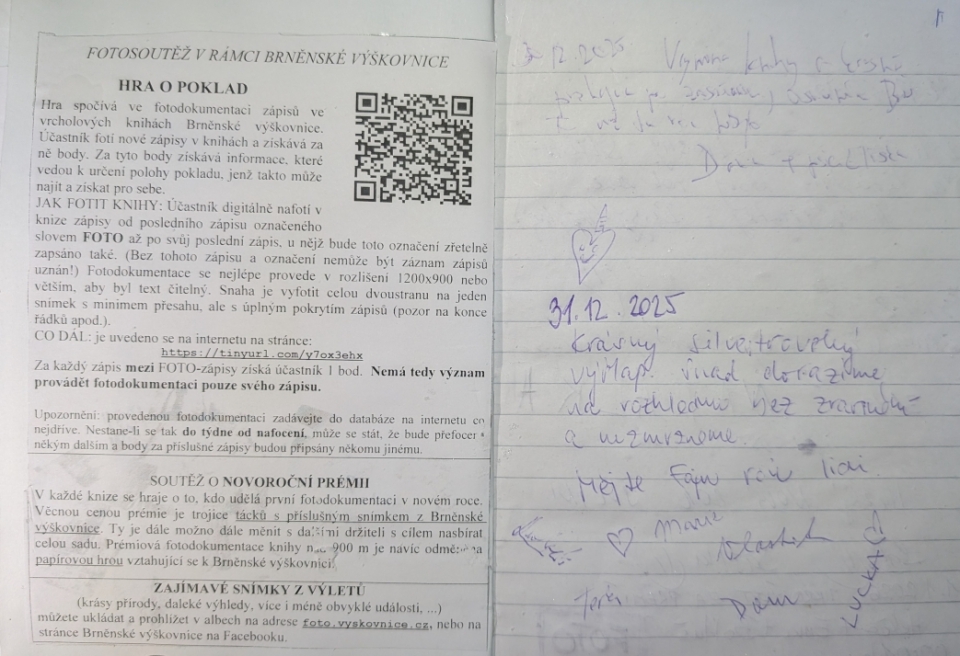 FOTOSOUTĚŽ V RÁMCI BRNĚNSKÉ VÝŠKOVNICE
HRA O POKLAD
Hra spočívá ve fotodokumentaci zápisů ve
vrcholových knihách Brněnské výškovnice.
Účastník fotí nové zápisy v knihách a získává za
ně body. Za tyto body získává informace, které
vedou k určení polohy pokladu, jenž takto může
najít a získat pro sebe.
JAK FOTIT KNIHY: Účastník digitálně nafotí v
knize zápisy od posledního zápisu označeného
slovem FOTO až po svůj poslední zápis, u nějž bude toto označení zřetelně
zapsáno také. (Bez tohoto zápisu a označení nemůže být záznam zápisů
uznán!) Fotodokumentace se nejlépe provede v rozlišení 1200x900 nebo
větším, aby byl text čitelný. Snaha je vyfotit celou dvoustranu na jeden
snímek s minimem přesahu, ale s úplným pokrytím zápisů (pozor na konce
řádků apod.).
CO DÁL: je uvedeno se na internetu na stránce:
https://tinyurl.com/y7ox3ehx
Za každý zápis mezi FOTO-zápisy získá účastník 1 bod. Nemá tedy význam
provádět fotodokumentaci pouze svého zápisu.
Upozornění: provedenou fotodokumentaci zadávejte do databáze na internetu co
nejdříve. Nestane-li se tak do týdne od nafocení, může se stát, že bude přefocena
někým dalším a body za příslušné zápisy budou připsány někomu jinému.
SOUTĚŽ O NOVOROČNÍ PRÉMII
V každé knize se hraje o to, kdo udělá první fotodokumentaci v novém roce.
Věcnou cenou prémie je trojice tácků s příslušným snímkem z Brněnské
výškovnice. Ty je dále možno dále měnit s dalšími držiteli s cílem nasbírat
celou sadu. Prémiová fotodokumentace knihy nad 900 m je navíc odměněna
papírovou hrou vztahující se k Brněnské výškovnici.
ZAJÍMAVÉ SNÍMKY Z VÝLETŮ
(krásy přírody, daleké výhledy, více i méně obvyklé události, ...)
můžete ukládat a prohlížet v albech na adrese foto.vyskovnice.cz, nebo na
stránce Brněnské výškovnice na Facebooku.
12.2025 knihy
31.12.2025
Krásný silvestrovský
výšlap. Snad dorazíme
na rozhlednu bez
a nezmrzneme.
Mějte fajn rok lidi
Marie
Vlastik
LUCKA